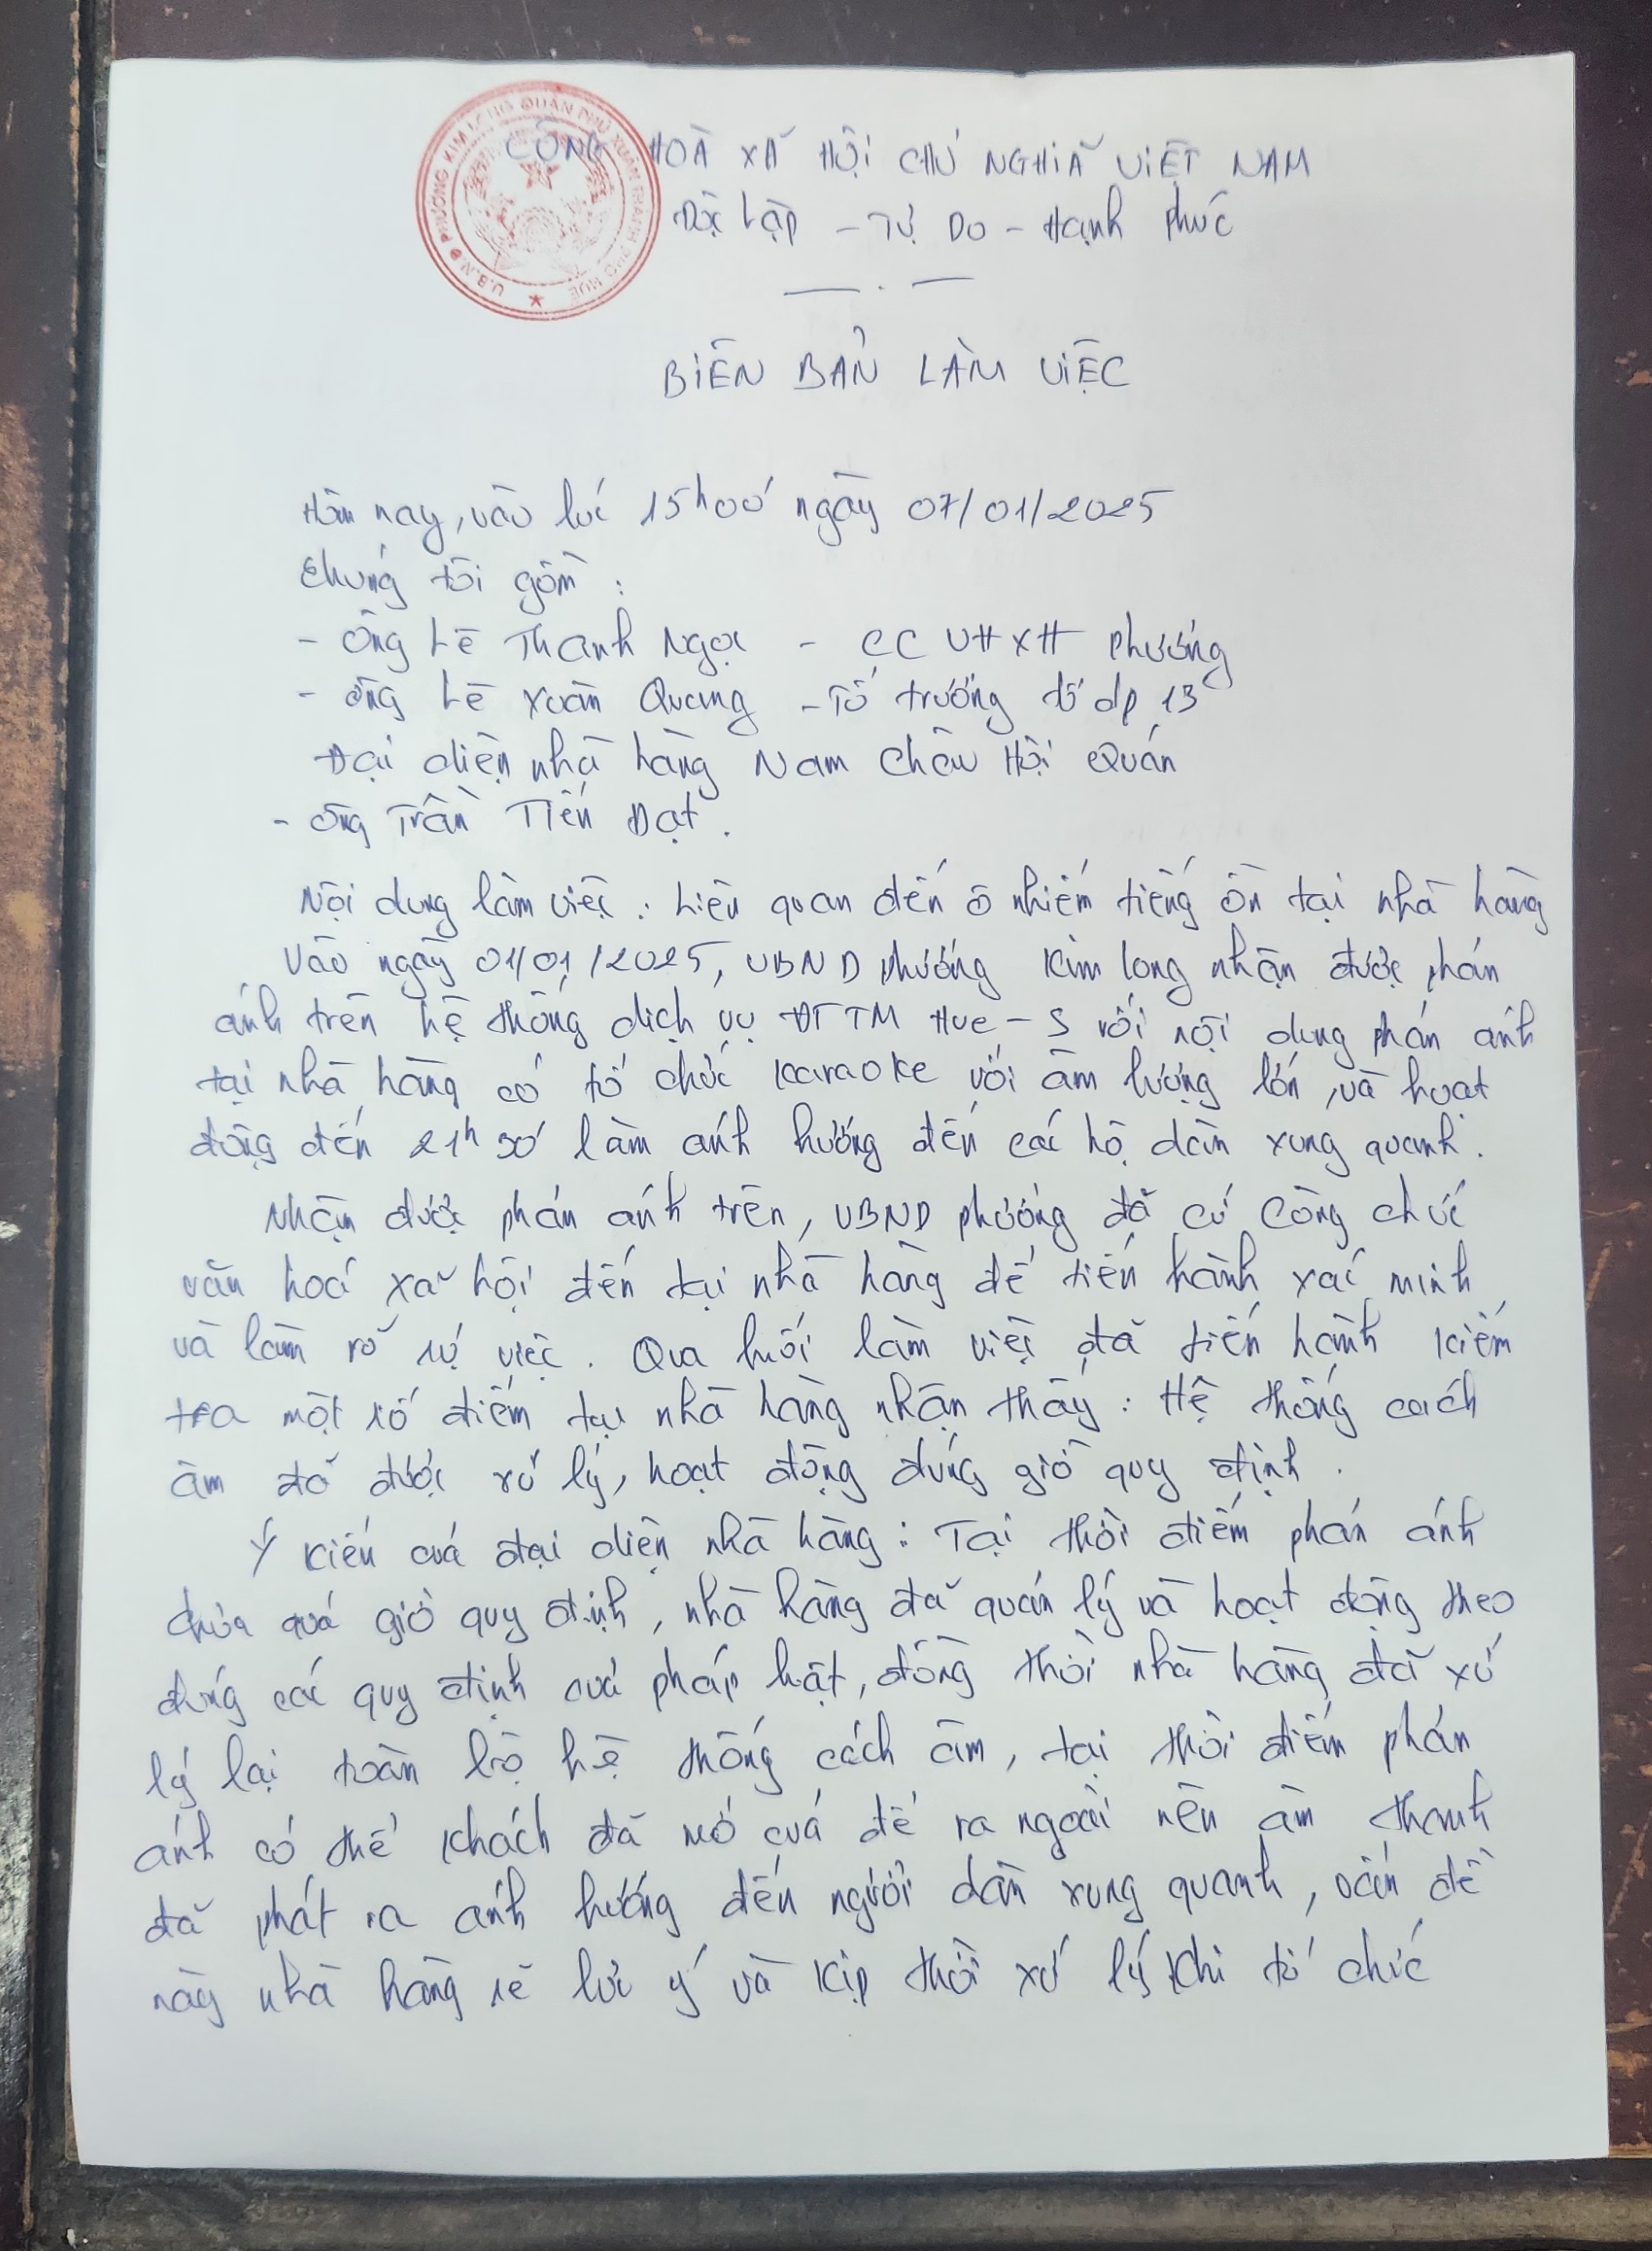 U.B.N.D PHƯỜNG KIM LONG QUẬN PHÚ XUÂN THÀNH PHỐ HUẾ
CỘNG HOÀ XÃ HỘI CHỦ NGHĨA VIỆT NAM
Độc lập - Tự Do - Hạnh phúc
BIÊN BẢN LÀM VIỆC
Hôm nay, vào lúc 15h00' ngày 07/01/2025
Chúng tôi gồm :
- Ông Lê Thanh Ngọc - CC VHXH phường
- Ông Lê Xuân Quang - Tổ trưởng tổ dp 13
Đại diện nhà hàng Nam Châu Hội Quán
- Ông Trần Tiến Đạt.
Nội dung làm việc : Liên quan đến ô nhiễm tiếng ồn tại nhà hàng
Vào ngày 01/01/2025, UBND phường Kim Long nhận được phản
ánh trên hệ thống dịch vụ ĐTTM Hue-S với nội dung phản ánh
tại nhà hàng có tổ chức karaoke với âm lượng lớn, và hoạt
động đến 21h30' làm ảnh hưởng đến các hộ dân xung quanh.
Nhận được phản ánh trên, UBND phường đã cử công chức
văn hoá xã hội đến tại nhà hàng để tiến hành xác minh
và làm rõ sự việc. Qua buổi làm việc đã tiến hành kiểm
tra một số điểm tại nhà hàng nhận thấy : Hệ thống cách
âm đã được xử lý, hoạt động đúng giờ quy định.
Ý kiến của đại diện nhà hàng : Tại thời điểm phản ánh
chưa quá giờ quy định, nhà hàng đã quản lý và hoạt động theo
đúng các quy định của pháp luật, đồng thời nhà hàng đã xử
lý lại toàn bộ hệ thống cách âm, tại thời điểm phản
ánh có thể khách đã mở cửa để ra ngoài nên âm thanh
đã phát ra ảnh hưởng đến người dân xung quanh, vấn đề
này nhà hàng sẽ lưu ý và kịp thời xử lý khi tổ chức